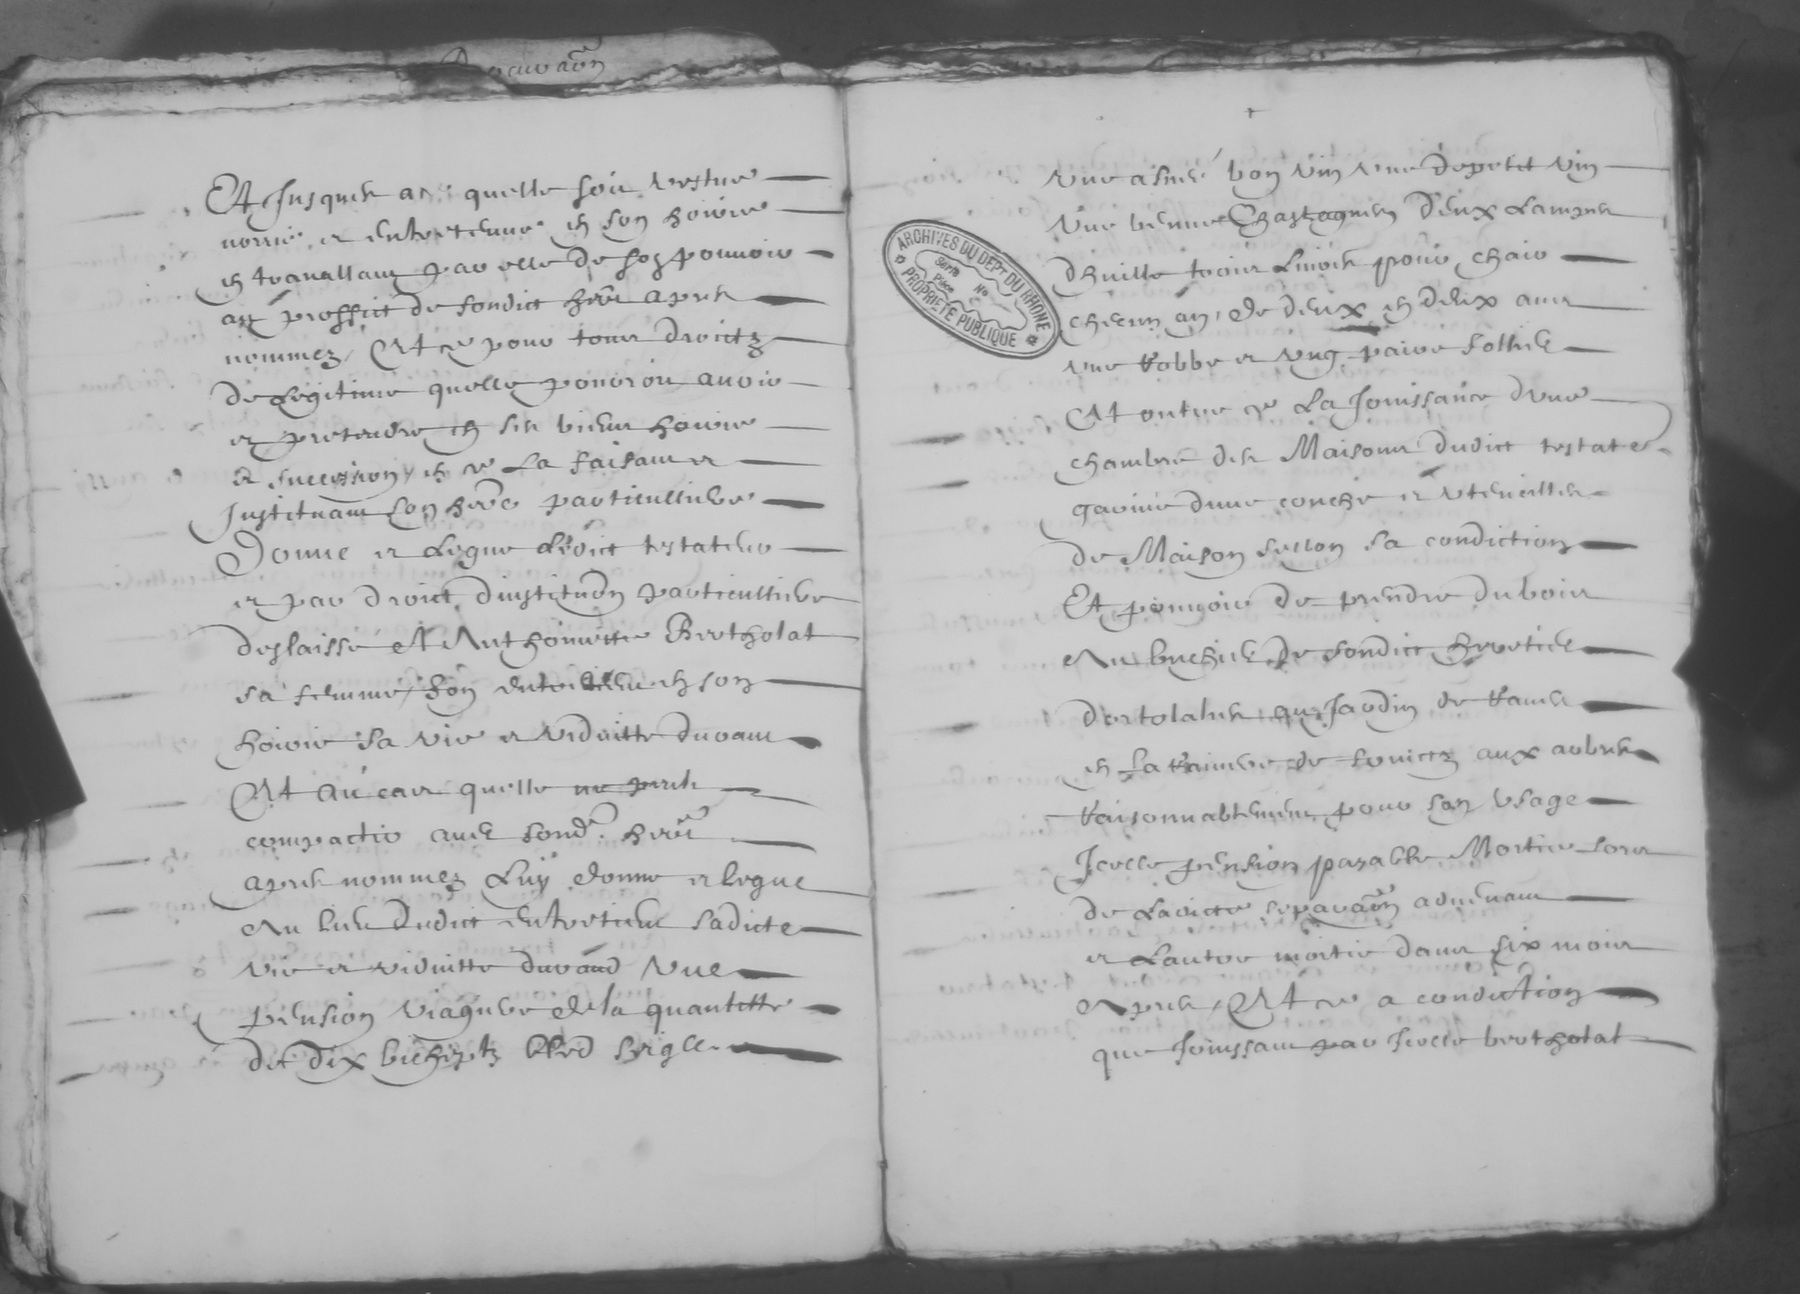 Procuraon
Et Jusques ac quelle soit vestue
norrie et entretenue en son hoirie
en travallant par elle de son pouvoir
au proffict de sondict here apres
nommez, Et ce pour tous droictz
de legitime quelle pourroit avoir
et pretendre en ses biens hoirie
et succession, en ce la faisant et
Instituant son here particulliere
Donne et legue ledict testateur
et par droict dinstituon particulliere
deslaisse et Anthoinette Bertholat
sa femme, son entretien en son
hoirie sa vie et viduitte durant
Et au cas quelle ne peult
compactir avec sond. here
apres nommez Luy donne et legue
Au lieu dudict entretien sadicte
vie et viduitte durand Une
pension viagere de la quantitte
de dix bichetz bled seigle
Une asnee bon vin une de petit vin
Une benne Chastagnes Deux Lampes
dhuille trois livres pour chair
checun an, de deux en deux ans
une Robbe et ung paire sollies
Et oultre ce La Jouissance dune
chambre des Maisons dudict testate
garnie dune couche et utencilles
de Maison sellon sa condiction
Et pouvoir de prendre du bois
Au buchier de sondict heretier
dortolalies au Jardin de Raves
en la Raviere de fruictz aux arbres
Raisonnablement pour son usage
Icelle pension payable Moitie lors
de ladicte separaon advenant
et Lautre moitie dans six mois
Apres, Et ce a condiction
que Jouissant par Icelle bertholat
ARCHIVES DU DEPT DU RHONE
Serie No
Piece
PROPRIETE PUBLIQUE